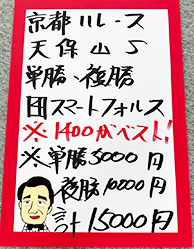 京都11レース
天保山S
単勝・複勝
団スマートフォルス
※1400がベスト!
※単勝5000円
複勝10000円
計15000円